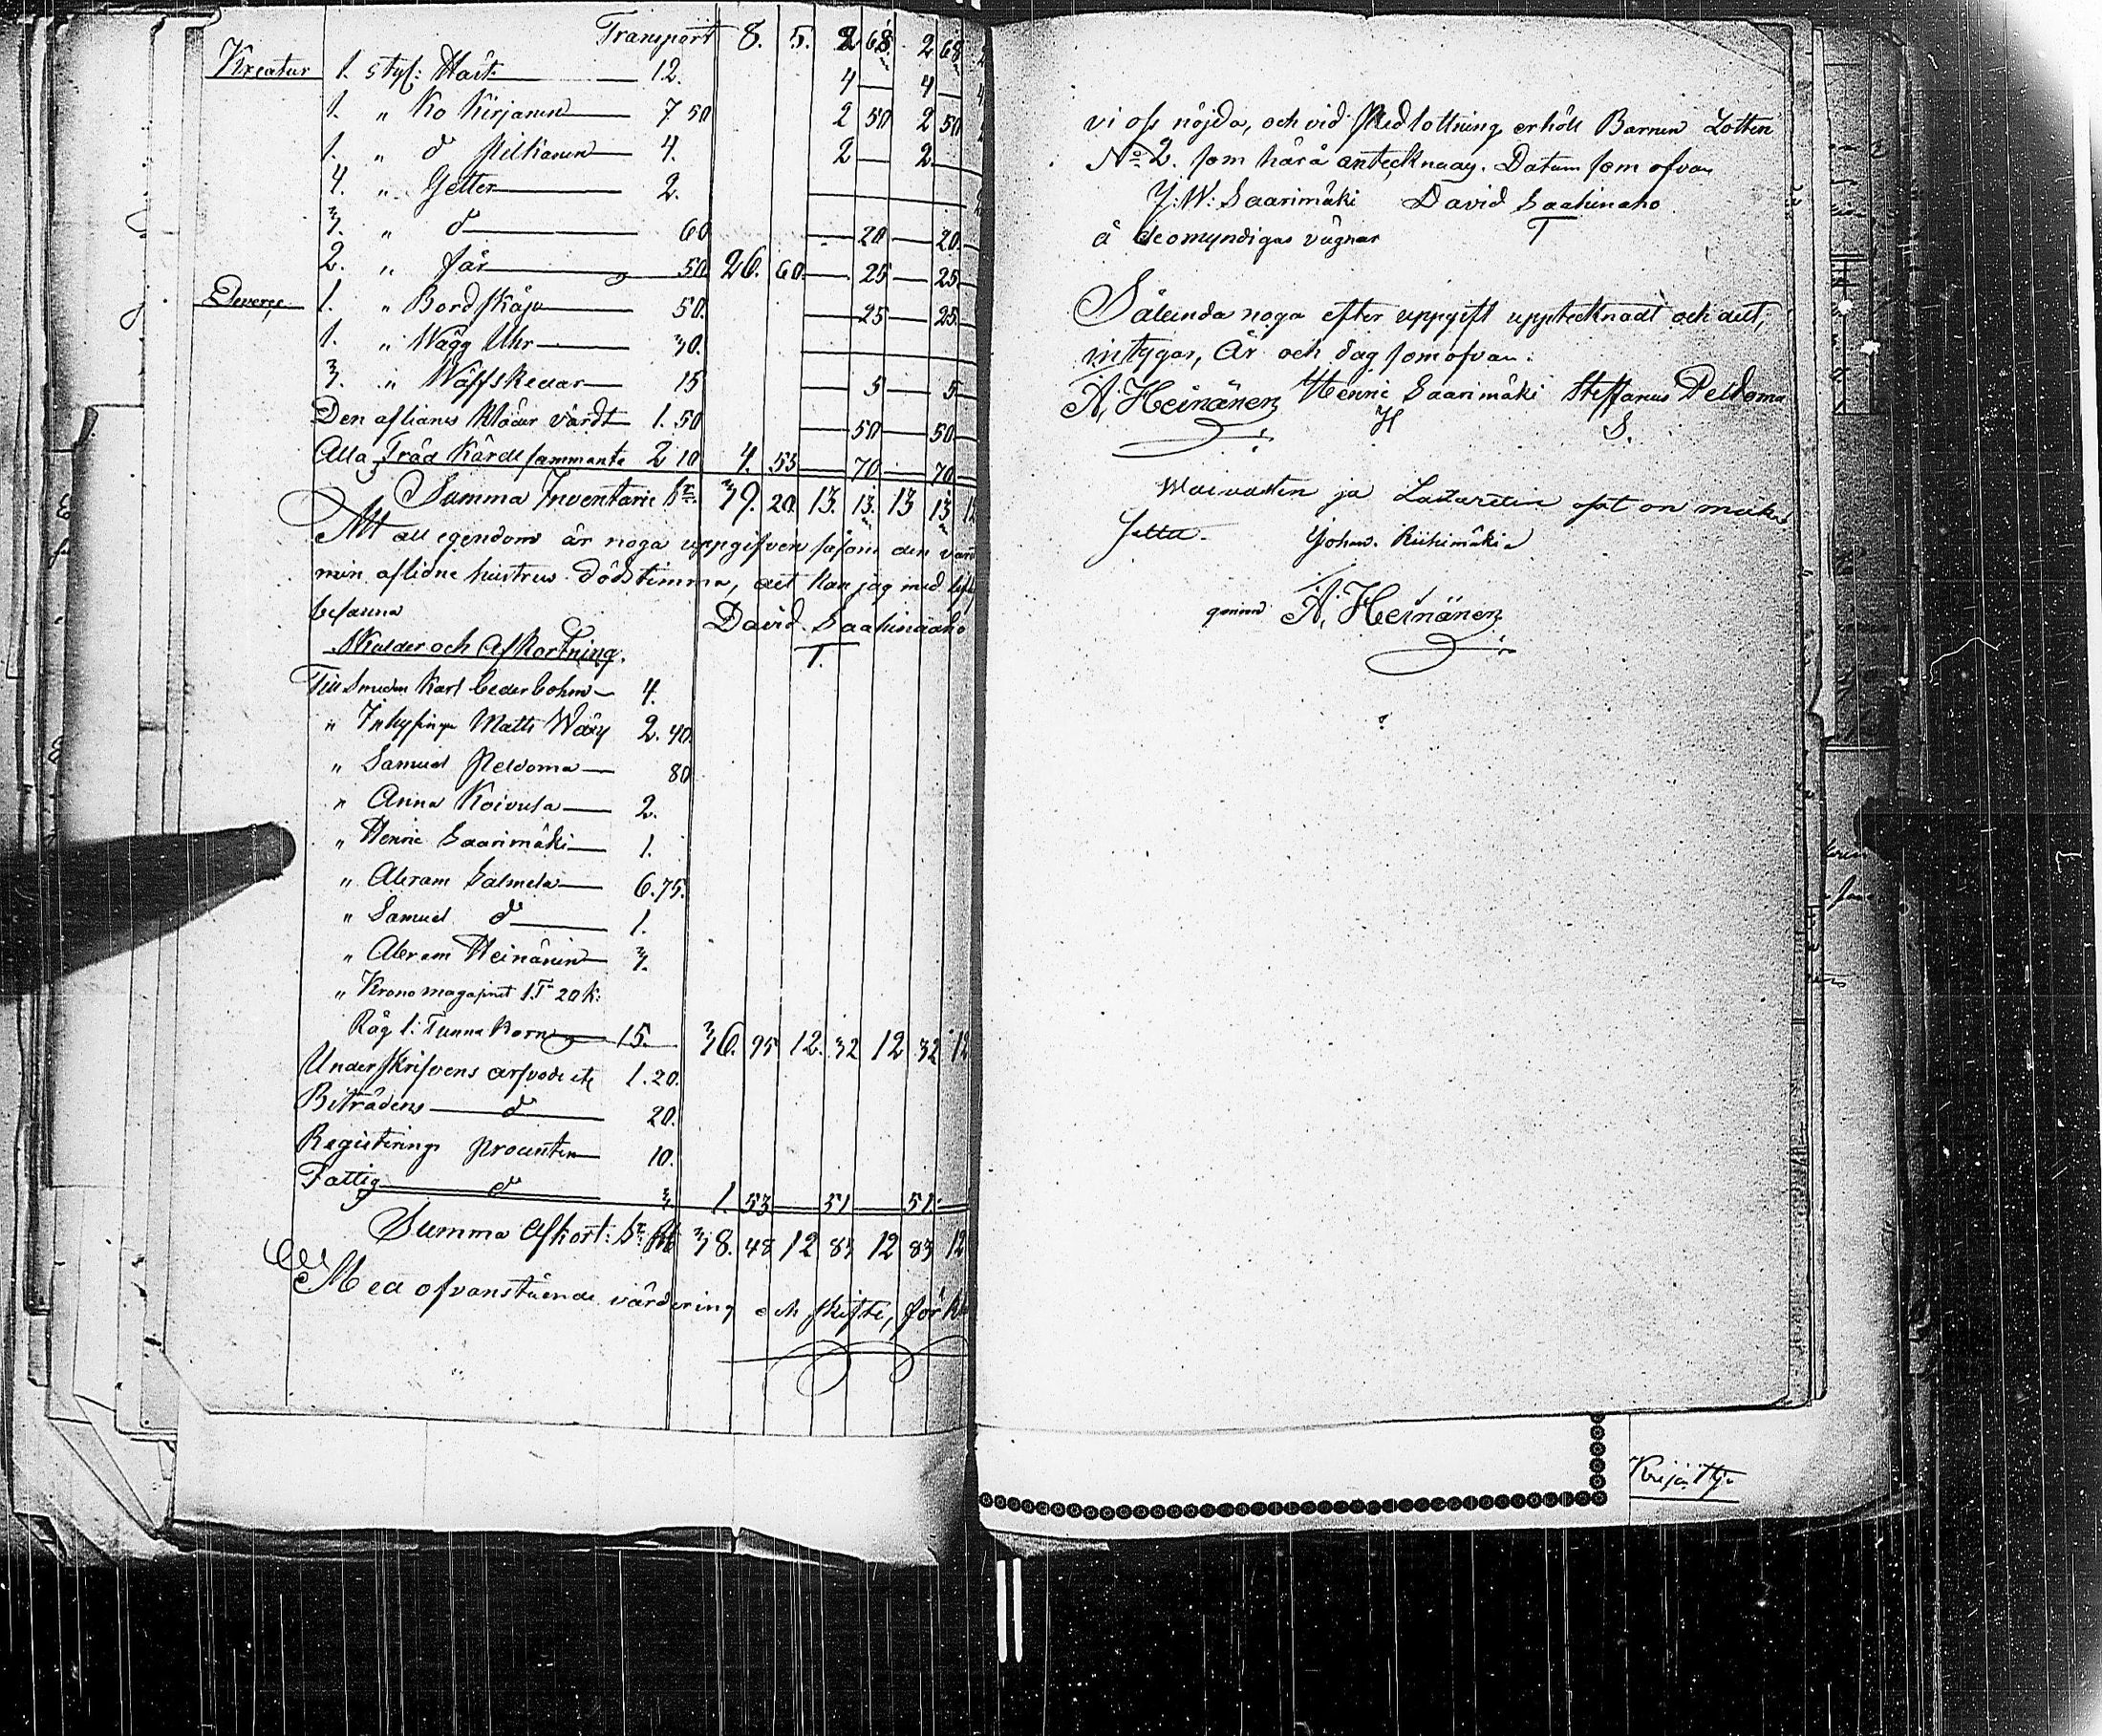 Transport 8. 5. 2 68. 2 68
Kreatur 1. styk: Häst 12. 4 — 4 —
1. " Ko Kirjanen 7 50 2 50 2 50
1. " d:o 4. 2 — 2 —
4. " Getter 2.
3. " d:o 60 — 20 — 20
2. " får 50. 26. 60. — 25 — 25
Deverse 1. " Bordskåp 50. — 25 — 25
1. " Wägg Uhr 30.
3. " Wäffskedar 15 — 5 — 5
Den aflidnes kläder värdt 1. 50 — 50 — 50
Alla Träd Kärell sammanta 2 10 4. 55 — 70 — 70
Summa Inventarie 39. 20. 13. 13. 13 13
Att all egendom är noga uppgifven såsom den var
min aflidne hustrus dödstimma, det kan jag med
besanna David Saahinaho
T.
Skulder och Afkortning.
Till Smeden Karl Cederbohm 4.
" Inhysing Matts Wäry 2. 40.
" Samuel Peldoma 80
" Anna Koivula 2.
" Henric Saarimäki 1.
" Abram Salmela 6. 75.
" Samuel d:o 1.
" Abram Heinänen 3.
" Krono magasinet 1 T 20 k:
Råg 1: Tunna Korn 15. 36. 95 12. 32 12 32 12
Underskrifvens arfvode 1. 20.
Biträdens d:o 20.
Registerings procenten 10.
Fattig d:o 3 1. 53 — 51 — 51 —
Summa Afkort: 38. 48 12 83 12 83 12
Med ofvanstående värdering och skifte, för
vi oss nöjda, och vid skedlottning erhöll Barnen Lotten
No 2. som härå antecknas. Datum som ofvan
J: W: Saarimäki David Saahinaho
å de omyndigas vägnar T
Sålunda noga efter uppgift upptecknadt och
intygar, År och dag som ofvan.
A. Heinänen Henric Saarimäki Steffanus Peldoma
H S.
Waivasten ja Lazaretin osat on
Johan. Riihimäki
genom A. Heinänen